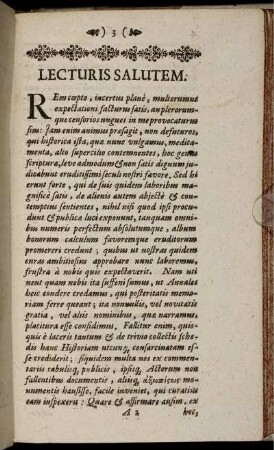 ) 3 (
LECTURIS SALUTEM.
REm cœpto, incertus planè, multorumne
expectationi facturus satis, an plerorum-
que censorios ungues in me provocaturus
sim: Jam enim animus præsagit, non defuturos,
qui historica ista, quæ nunc vulgamus, medita-
menta, alto supercilio contemnentes, hoc genus
scripturæ, leve admodum & non satis dignum ju-
dicabunt eruditissimi seculi nostri favore. Sed hi
erunt fortè, qui de suis quidem laboribus ma-
gnificè satis, de alienis autem abjectè & con-
temptius sentientes, nihil nisi quod ipsi procu-
dunt & publicæ luci exponunt, tanquam omni-
bus numeris perfectum absolutumque, album
bonorum calculum favoremque eruditorum
promereri credunt; quibus ut nostras quidem
curas ambitiosius approbare nunc laboremus,
frustra à nobis quis expectaverit. Nam uti
neut quam nobis ita suffeni sumus, ut Annales
heic condere credamus, qui posteritatis memo-
riam ferre queant; ita nonnullis, vel novitatis
gratia, vel aliis nominibus, quæ narramus,
placitura esse confidimus. Fallitur enim, quis-
quis è laceris tantum & de trivio collectis sche-
dis hanc Historiam utcunq; consarcinatam es-
se crediderit; siquidem multa nos ex commen-
tariis tabulisq; publicis, ipsisq; Actorum non
fallentibus documentis, aliisq; ἀξιοπίςοις mo-
numentis hausisse, facile inveniet, qui curatius
eam inspexerit: Quare & affirmare ausim, ex
A 2 hec,